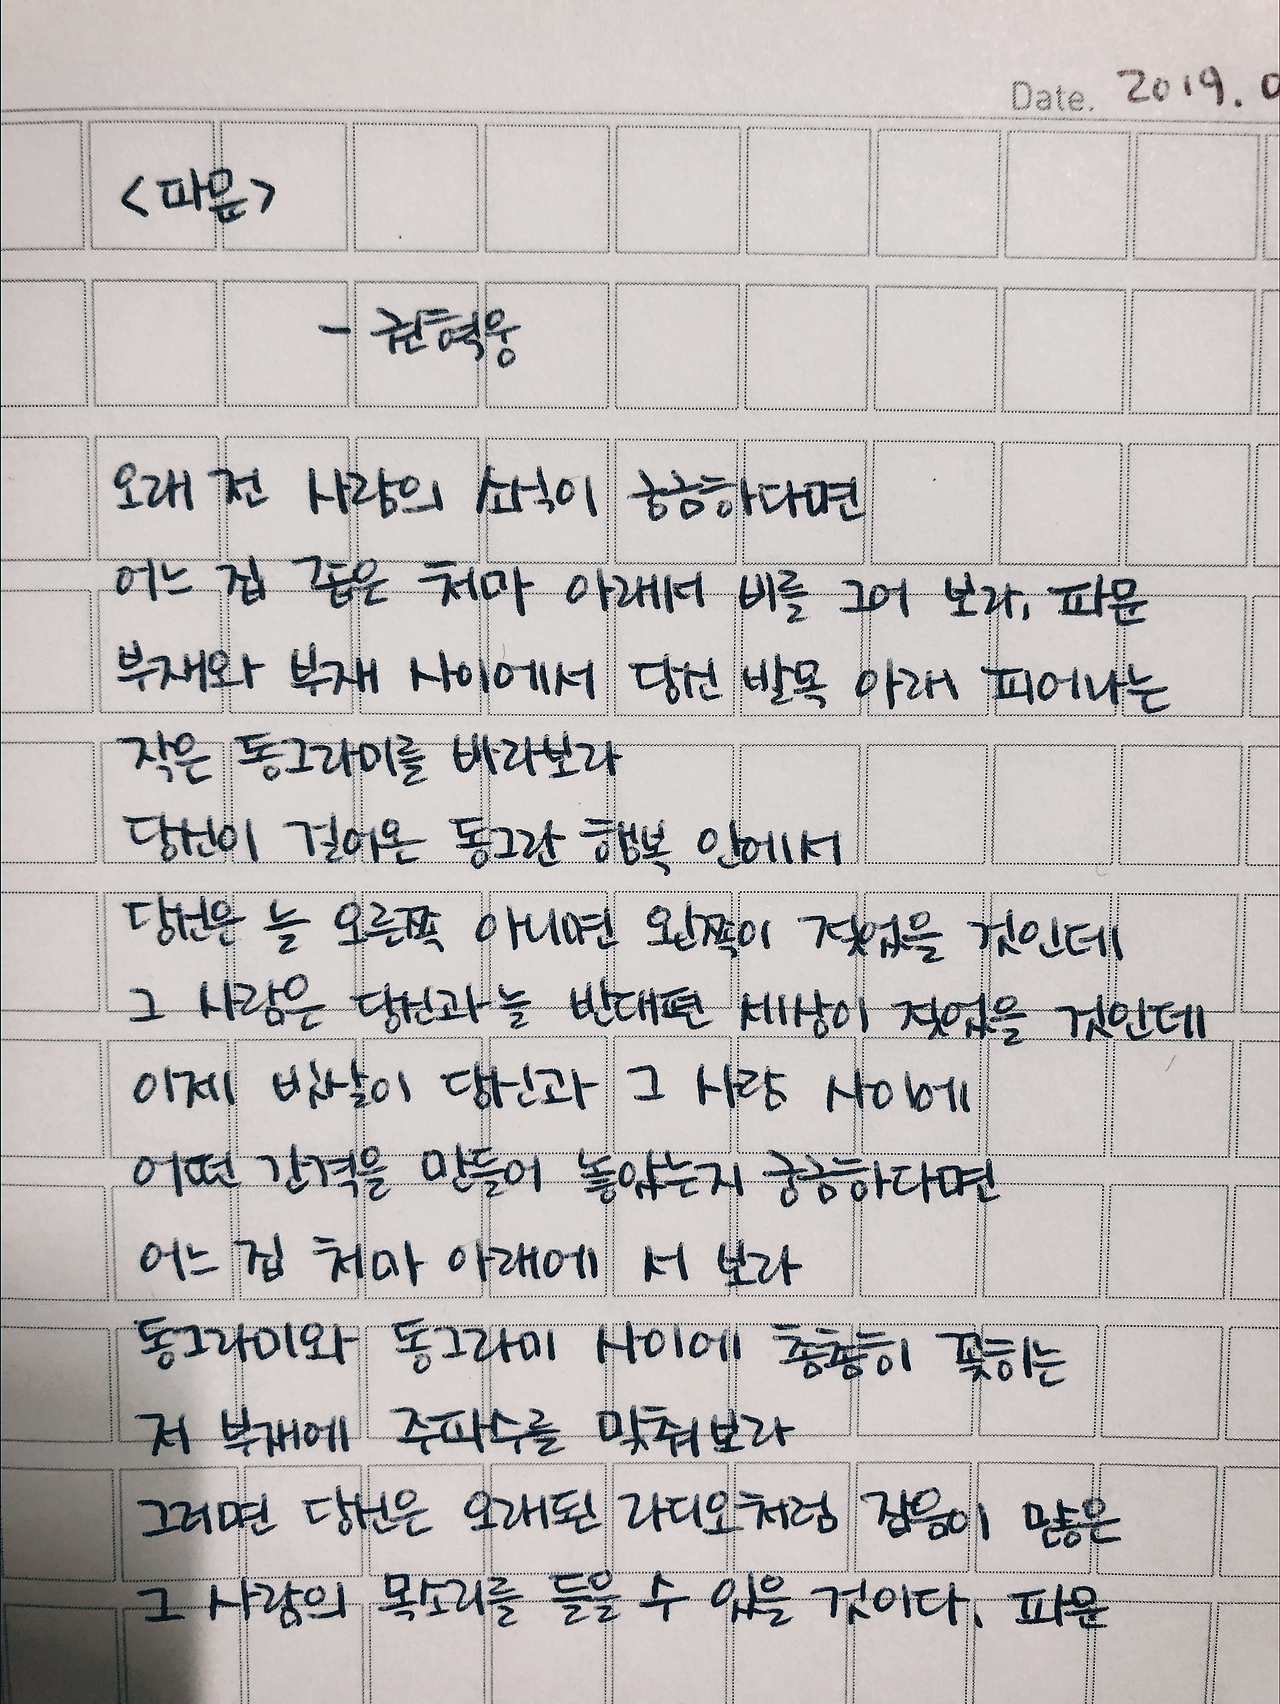 Date. 2019. 0
<파문>
- 권혁웅
오래 전 사람의 소식이 궁금하다면
어느 집 좁은 처마 아래서 비를 그어 보라, 파문
부재와 부재 사이에서 당신 발목 아래 피어나는
작은 동그라미를 바라보라
당신이 걸어온 동그란 행복 안에서
당신은 늘 오른쪽 아니면 왼쪽이 젖었을 것인데
그 사람은 당신과 늘 반대편 세상이 젖었을 것인데
이제 빗살이 당신과 그 사람 사이에
어떤 간격을 만들어 놓았는지 궁금하다면
어느 집 처마 아래에 서 보라
동그라미와 동그라미 사이에 촘촘히 꽂히는
저 부재에 주파수를 맞춰보라
그러면 당신은 오래된 라디오처럼 잡음이 많은
그 사람의 목소리를 들을 수 있을 것이다, 파문